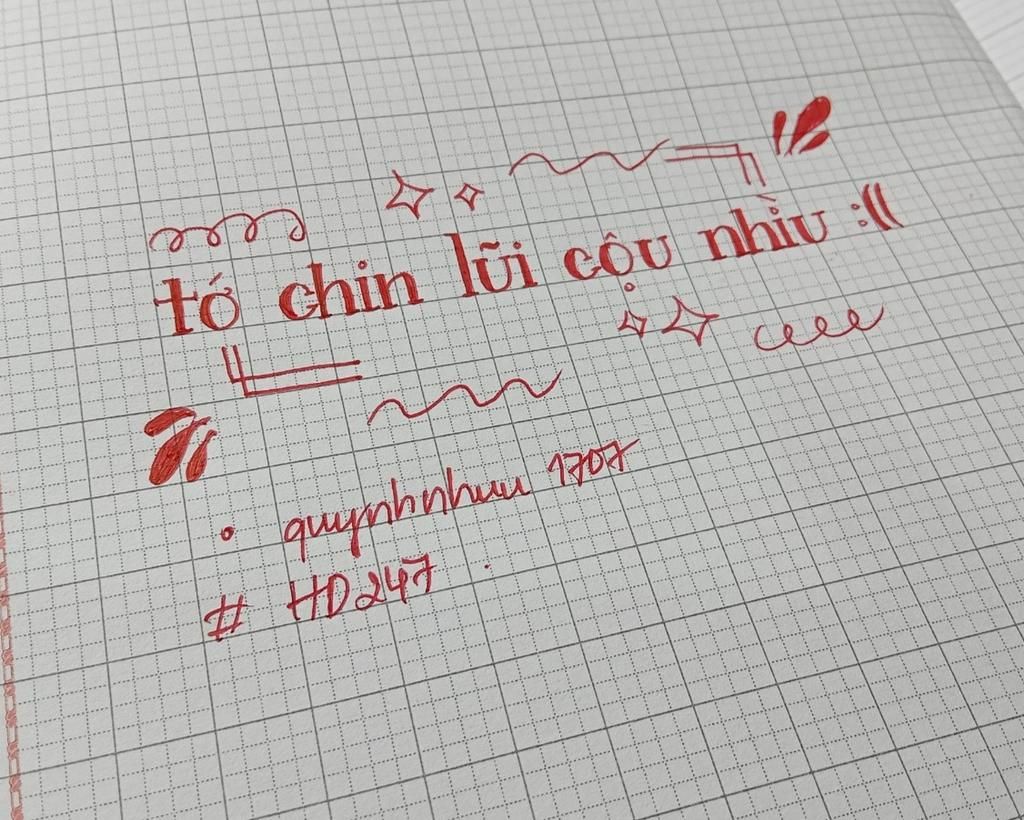 tớ chin lũi cộu nhìu :((
• quynhnhuu 1707
# HD247